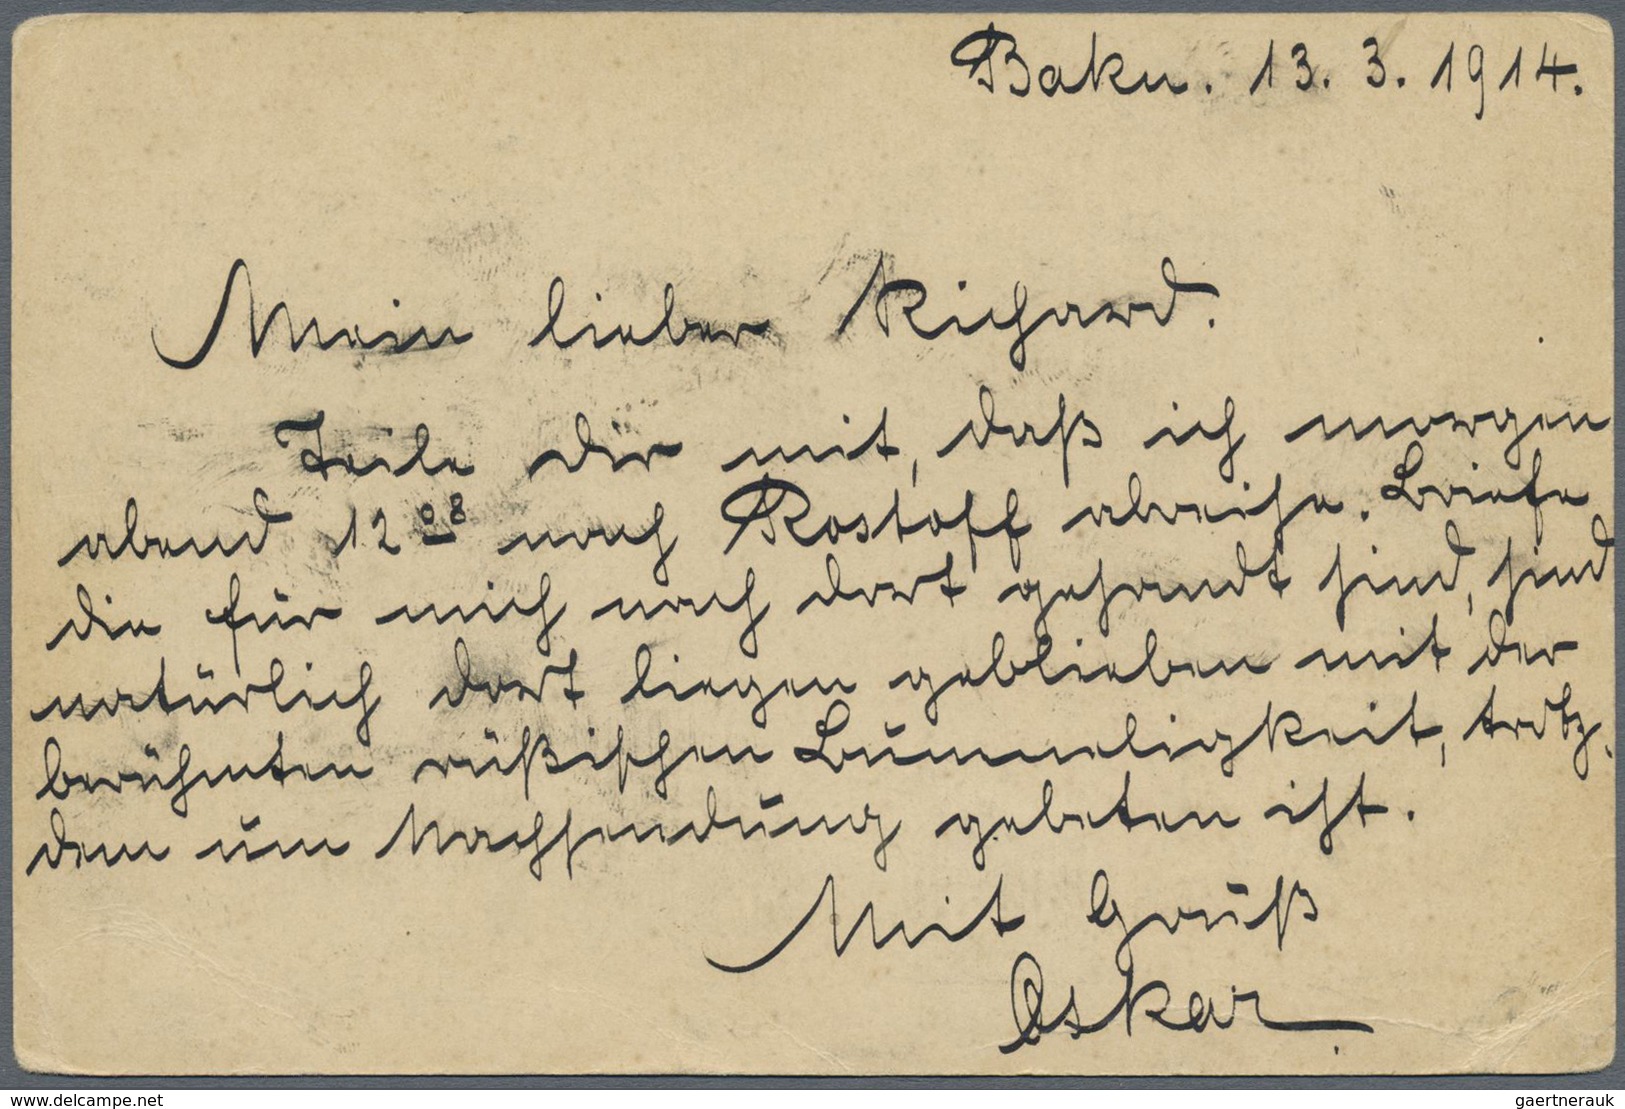 Baku. 13. 3. 1914.
Mein lieber Richard.
Teile dir mit, daß ich morgen
abend 12 08 nach Rostoff abreise. Briefe
die für mich nach dort gesandt sind, sind
natürlich dort liegen geblieben mit der
berühmten rußischen Bummeligkeit, trotz-
dem um Nachsendung gebeten ist.
Mit Gruß
Oskar.
www.delcampe.net
gaertnerauk